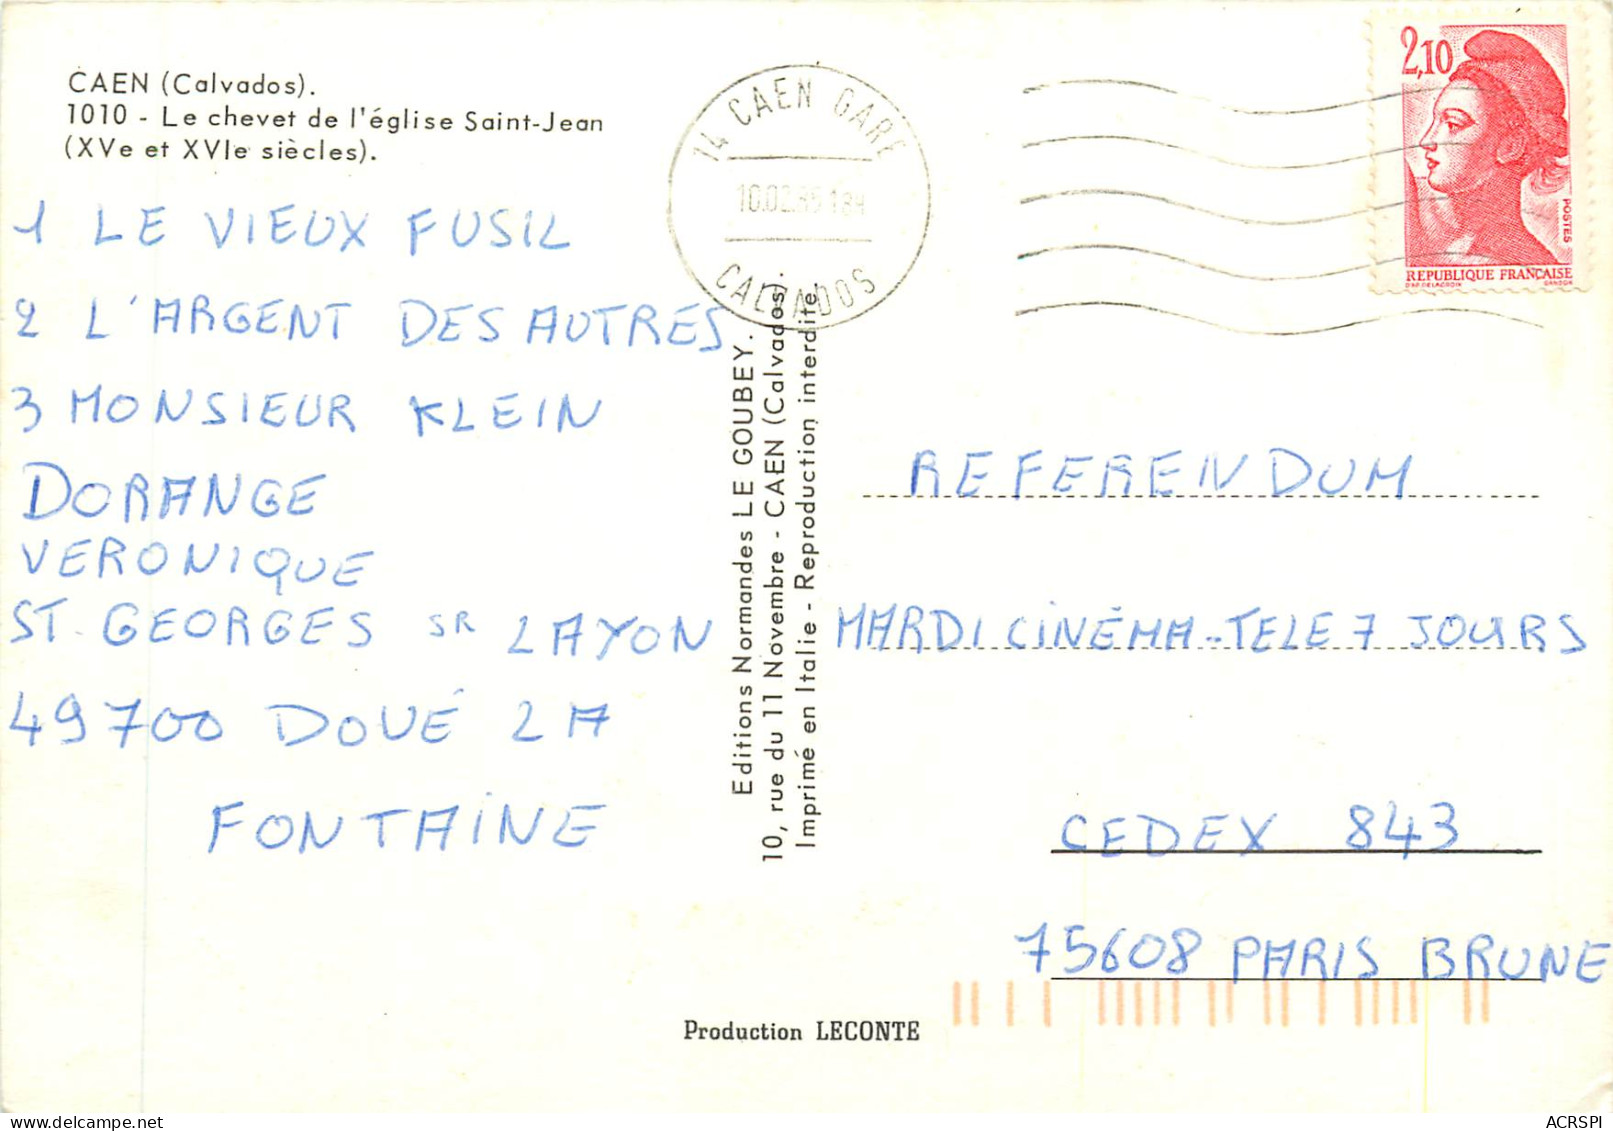 CAEN (Calvados).
1010 - Le chevet de l'église Saint-Jean
(XVe et XVIe siècles).
1 LE VIEUX FUSIL
2 L'ARGENT DES AUTRES
3 MONSIEUR KLEIN
DORANGE
VERONIQUE
ST GEORGES SR LAYON
49700 DOUÉ LA
FONTAINE
14 CAEN GARE
CALVADOS
2,10
POSTES
REPUBLIQUE FRANCAISE
D'AP. DELACROIX GANDON
Editions Normandes LE GOUBEY.
10, rue du 11 Novembre - CAEN (Calvados).
Imprimé en Italie - Reproduction interdite
REFERENDUM
MARDI CINÉMA - TELE 7 JOURS
CEDEX 843
75608 PARIS BRUNE
Production LECONTE
ACRSPI